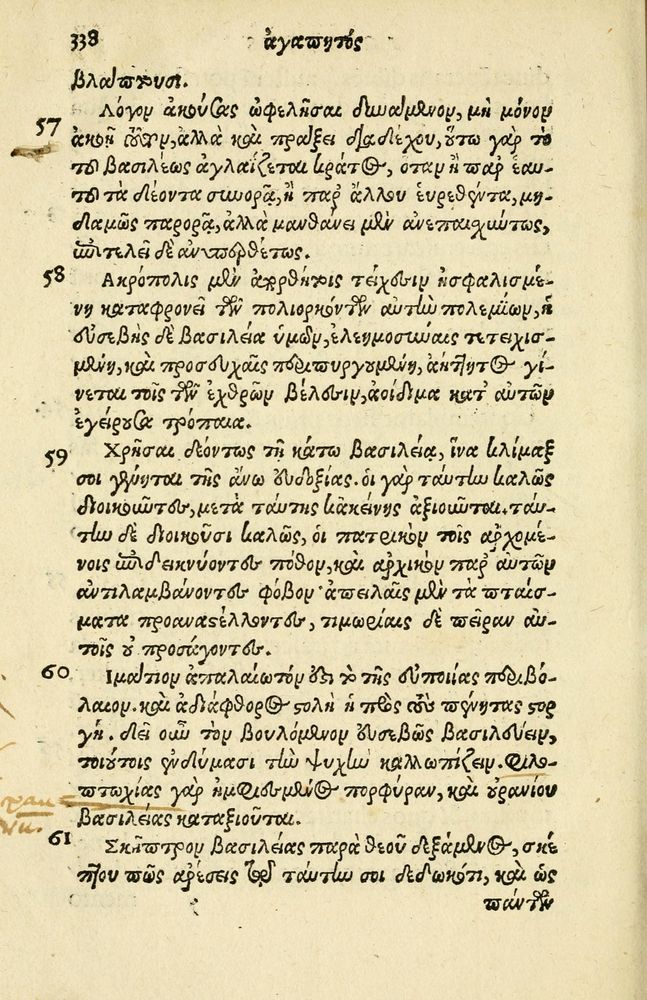 338 ἀγαπητός
βλάπτουσι.
57 Λόγον ἀκούσας ὠφελῆσαι δυνάμενον, μὴ μόνον
ἀκοῇ τοῦτον, ἀλλὰ καὶ πράξει διαδέχου, οὕτω γὰρ τὸ
τοῦ βασιλέως ἀγλαΐζεται κράτος, ὅταν ἢ παρ' ἑαυ-
τοῦ τὰ δέοντα συνορᾷ, ἢ παρ' ἄλλου εὑρεθέντα, μη-
δαμῶς παρορᾷ, ἀλλὰ μανθάνει μὲν ἀνεπαισχύντως,
ἐπιτελεῖ δὲ ἀνυπερθέτως.
58 Ακρόπολις μὲν ἀρρήκτοις τείχεσιν ἠσφαλισμέ-
νη καταφρονεῖ τῶν πολιορκούντων αὐτὴν πολεμίων, ἡ
εὐσεβὴς δὲ βασιλεία ὑμῶν, ἐλεημοσύναις τετειχισ-
μένη, καὶ προσευχαῖς περιπυργουμένη, ἀήττητος γί-
νεται τοῖς τῶν ἐχθρῶν βέλεσιν, ἀοίδιμα κατ' αὐτῶν
ἐγείρουσα τρόπαια.
59 Χρῆσαι δεόντως τῇ κάτω βασιλείᾳ, ἵνα κλίμαξ
σοι γένηται τῆς ἄνω εὐδοξίας. οἱ γὰρ ταύτην καλῶς
διοικοῦντες, μετὰ ταύτης κἀκείνης ἀξιοῦνται. ταύ-
την δὲ διοικοῦσι καλῶς, οἱ πατρικὸν τοῖς ἀρχομέ-
νοις ἐπιδεικνύοντες πόθον, καὶ ἀρχικὸν παρ' αὐτῶν
ἀντιλαμβάνοντες φόβον· ἀπειλαῖς μὲν τὰ πταίσ-
ματα προαναστέλλοντες, τιμωρίαις δὲ πεῖραν αὐ-
τοῖς οὐ προσάγοντες.
60 Ιμάτιον ἀπαλαίωτόν ἐστι τὸ τῆς εὐποιίας περιβό-
λαιον. καὶ ἀδιάφθορος στολὴ ἡ πρὸς τοὺς πένητας στορ
γή. δεῖ οὖν τὸν βουλόμενον εὐσεβῶς βασιλεύειν,
τοιούτοις ἐνδύμασι τὴν ψυχὴν καλλωπίζειν. Φιλο-
πτωχίας γὰρ ἠμφιεσμένος πορφύραν, καὶ οὐρανίου
βασιλείας καταξιοῦται.
61 Σκῆπτρον βασιλείας παρὰ θεοῦ δεξάμενος, σκέ
πτου πῶς ἀρέσεις τῷ ταύτην σοι δεδωκότι, καὶ ὡς
πάντων